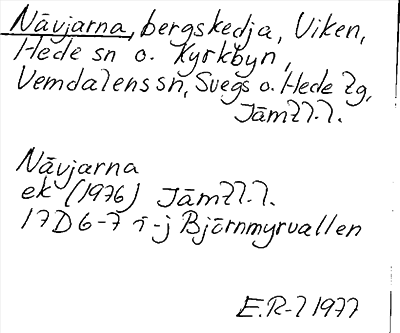 Nävjarna, bergskedja, Viken,
Hede sn o. Kyrkbyn,
Vemdalens sn, Svegs o. Hede tg,
Jämtl. l.
Nävjarna
ek (1976) Jämtl. l.
17D 6-7 i-j Björnmyrvallen
E.R-l 1977